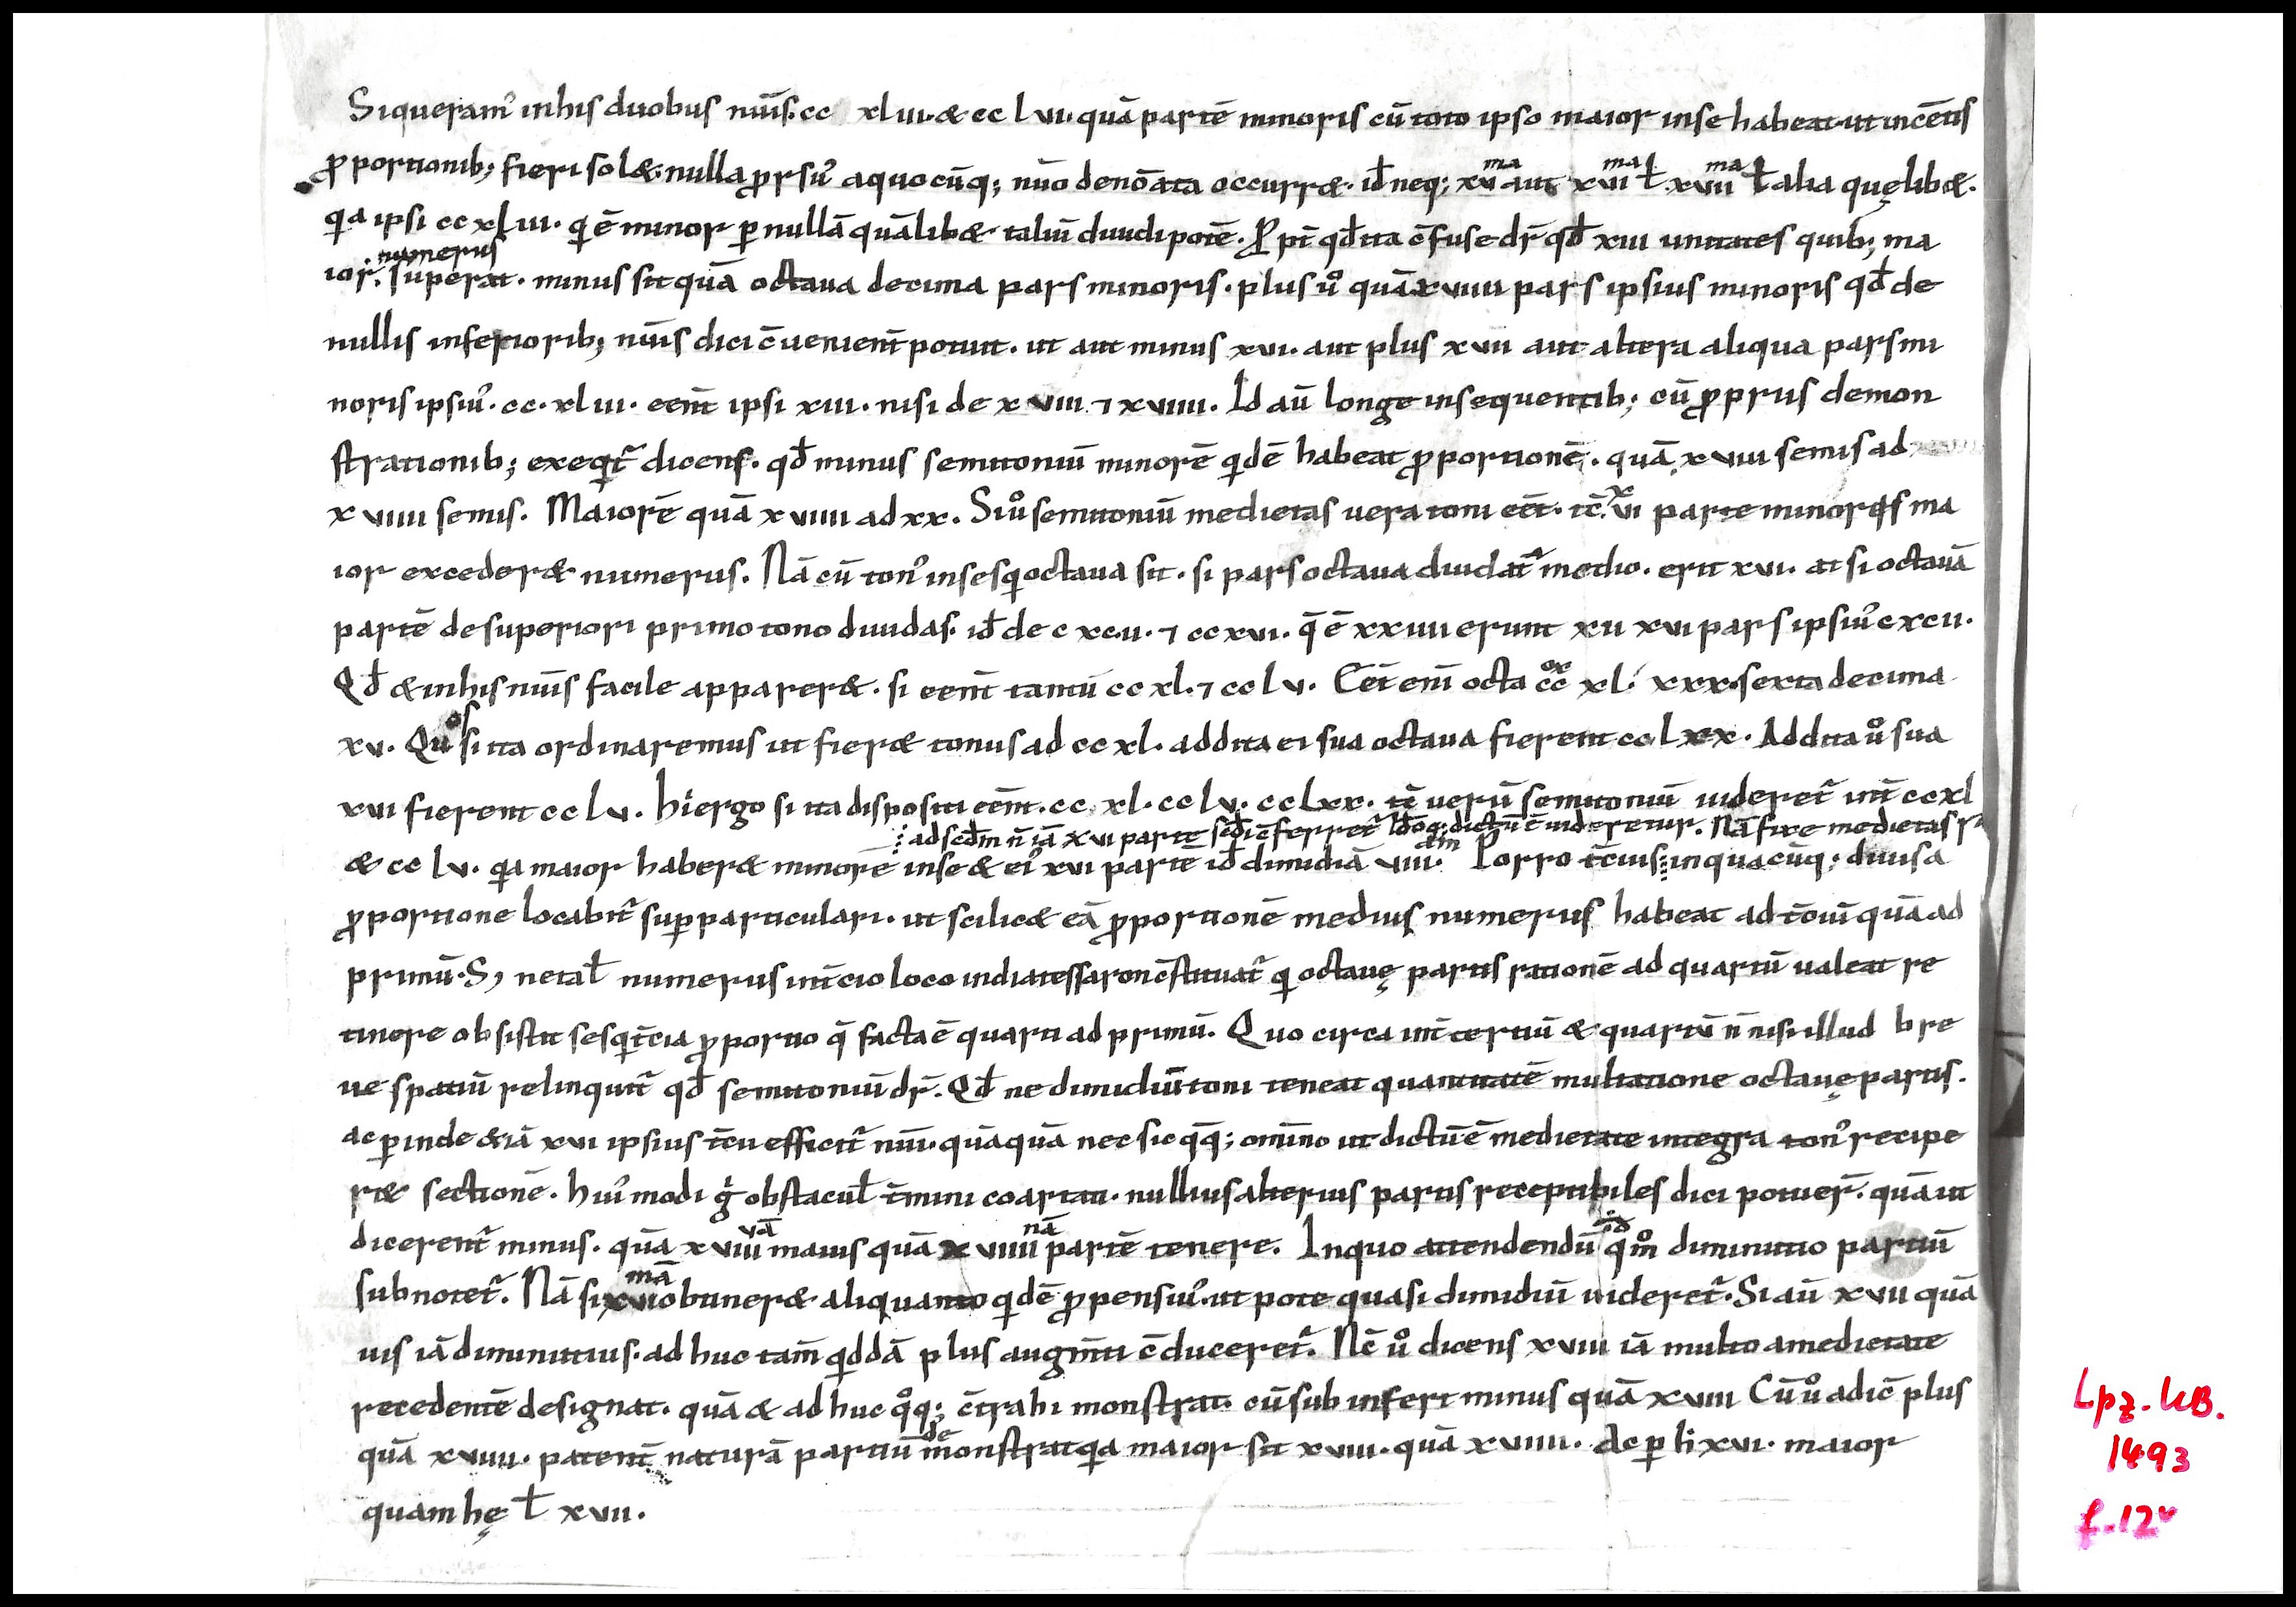 Siqueram᾽ inhis duobus nūīs. cc xl iii. & cc l vi. quā partē minoris cū toto ipso maior inse habeat. ut incēt̄is
ꝓportionib; fieri sol&. nulla ꝓrsu᾽ aquocūq; nūō denōata occurr&. id̄ neq; xvᵐᵃ aut xviᵐᵃ ł xviiᵐᵃ ł alia quęlib&.
qia ipsi cc xl iii. qi ē minor ꝑ nullā quālib& taliū diuidi potē. Ꝓpt̄ qd̄ ita c̄fuse dr̄ qd̄ xiii unitates quib; ma
ior. numerus superat. minus sit quā octaua decima pars minoris. plus ůo quā xviiii pars ipsius minoris qd̄ de
nullis inferiorib; nūīs dici c̄uenient̄ potuit. ut aut minus xvi. aut plus xvii aut altera aliqua pars mi
noris ipsiu᾽. cc. xl iii. eēnt ipsi xiii. nisi de x viii ⁊ x viiii. Id aū longe insequentib; cū ꝓpriis demon
strationib; exeqit᾽ dicens. qd̄ minus semitoniū minorē qidē habeat ꝓportionē. quā x viii semis ad
x viiii semis. Maiorē quā x viiii ad xx. Si ůo semitoniū medietas uera toni eēt. tc̄ xvi parte minores ma
ior exceder& numerus. Nā cū ton᾽ insesqioctaua sit. si pars octaua diuidat᾽ medio. erit xvi. at si octauā
partē de superiori primo tono diuidas. id̄ de c xc.ii. ⁊ cc xvi. q̄ ē xx iiii erunt xii xvi pars ipsiu᾽ c xc ii.
Qd̄ & inhis nūīs facile apparer&. si eēnt tantū cc xl. ⁊ cc l v. Eēt enī octa ex cc xl. xxx. sexta decima
xv. Quos si ita ordinaremus ut fier& tonus ad cc xl. addita ei sua octaua fierent cc lxx. Addita ůo sua
xvi fierent cc l v. hi ergo si ita dispositi eēnt. cc. xl. cc l v. cc lxx. tc̄ uerū semitoniū uideret᾽ int̄ cc xl
ad sed̄m n̄ iā xvi parte sed̄ic̄ferret᾽ Id̄oq; dictū ē uideretur. Nā fixe medietas
& cc l v. qia maior haber& minorē inse & ei᾽ xvi partē id̄ dimidiā viii.am Porro tc̄ius inquacūq; diuisa
ꝓportione locabit᾽ suꝑparticulari. ut scilic& eā ꝓportionē medius numerus habeat ad tc̄iū quā ad
primū. S, ne tał numerus int̄cio loco indiatessaron c̄stituat᾽ qi octauę partis rationē ad quartū ualeat re
tinere obsistit sesqit̄cia ꝓportio q̄ facta ē quarti ad primū. Quo circa int̄ tertiū & quartū n̄ nisi illud bre
ue spatiū relinquit᾽ qd̄ semitoniū dr̄. Qd̄ ne dimidiū toni teneat quantitatē multatione octauę partis.
ac ꝑinde &iā xvi ipsius tc̄ii efficit᾽ nūī. quāquā nec sic qq̄; omīno ut dictū ē medietate integra ton᾽ recipe
r& sectionē. hui᾽modi gⁱ obstacuł t̄mini coartati. nullius alterius partis receptibiles dici potuer̄. quā ut
dicerent᾽ minus. quā x viiiᵛᵃ̄ maius quā x viiiiⁿᵃ̄ partē tenere. Inquo attendendū qm̊ diminutio partiū
subnotet᾽. Nā si xviᵐᵃ̄ obtiner& aliquanto qidē ꝓpensiu᾽. ut pote quasi dimidiū uideret᾽. Si aū xvii quā
uis iā diminutius. ad huc tam̄ qiddā plus augm̄ti c̄duceret᾽. Nc̄ ůo dicens xviii iā multo amedietate
recedentē designat. quā & ad huc qͦq; c̄trahi monstrat. cū sub infert minus quā xviii Cū ůo adic̄ plus
quā x viiii. patent̄ naturā partiū demonstrat qia maior sit x viii. quā x viiii. Ac ꝑ h̄ xvi. maior
quam hę ł xvii.
Lpz. UB.
1493
f. 12ᵛ